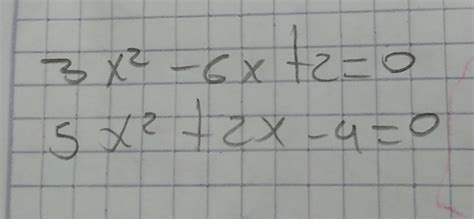 3x² - 6x + 2 = 0
5x² + 2x - 4 = 0